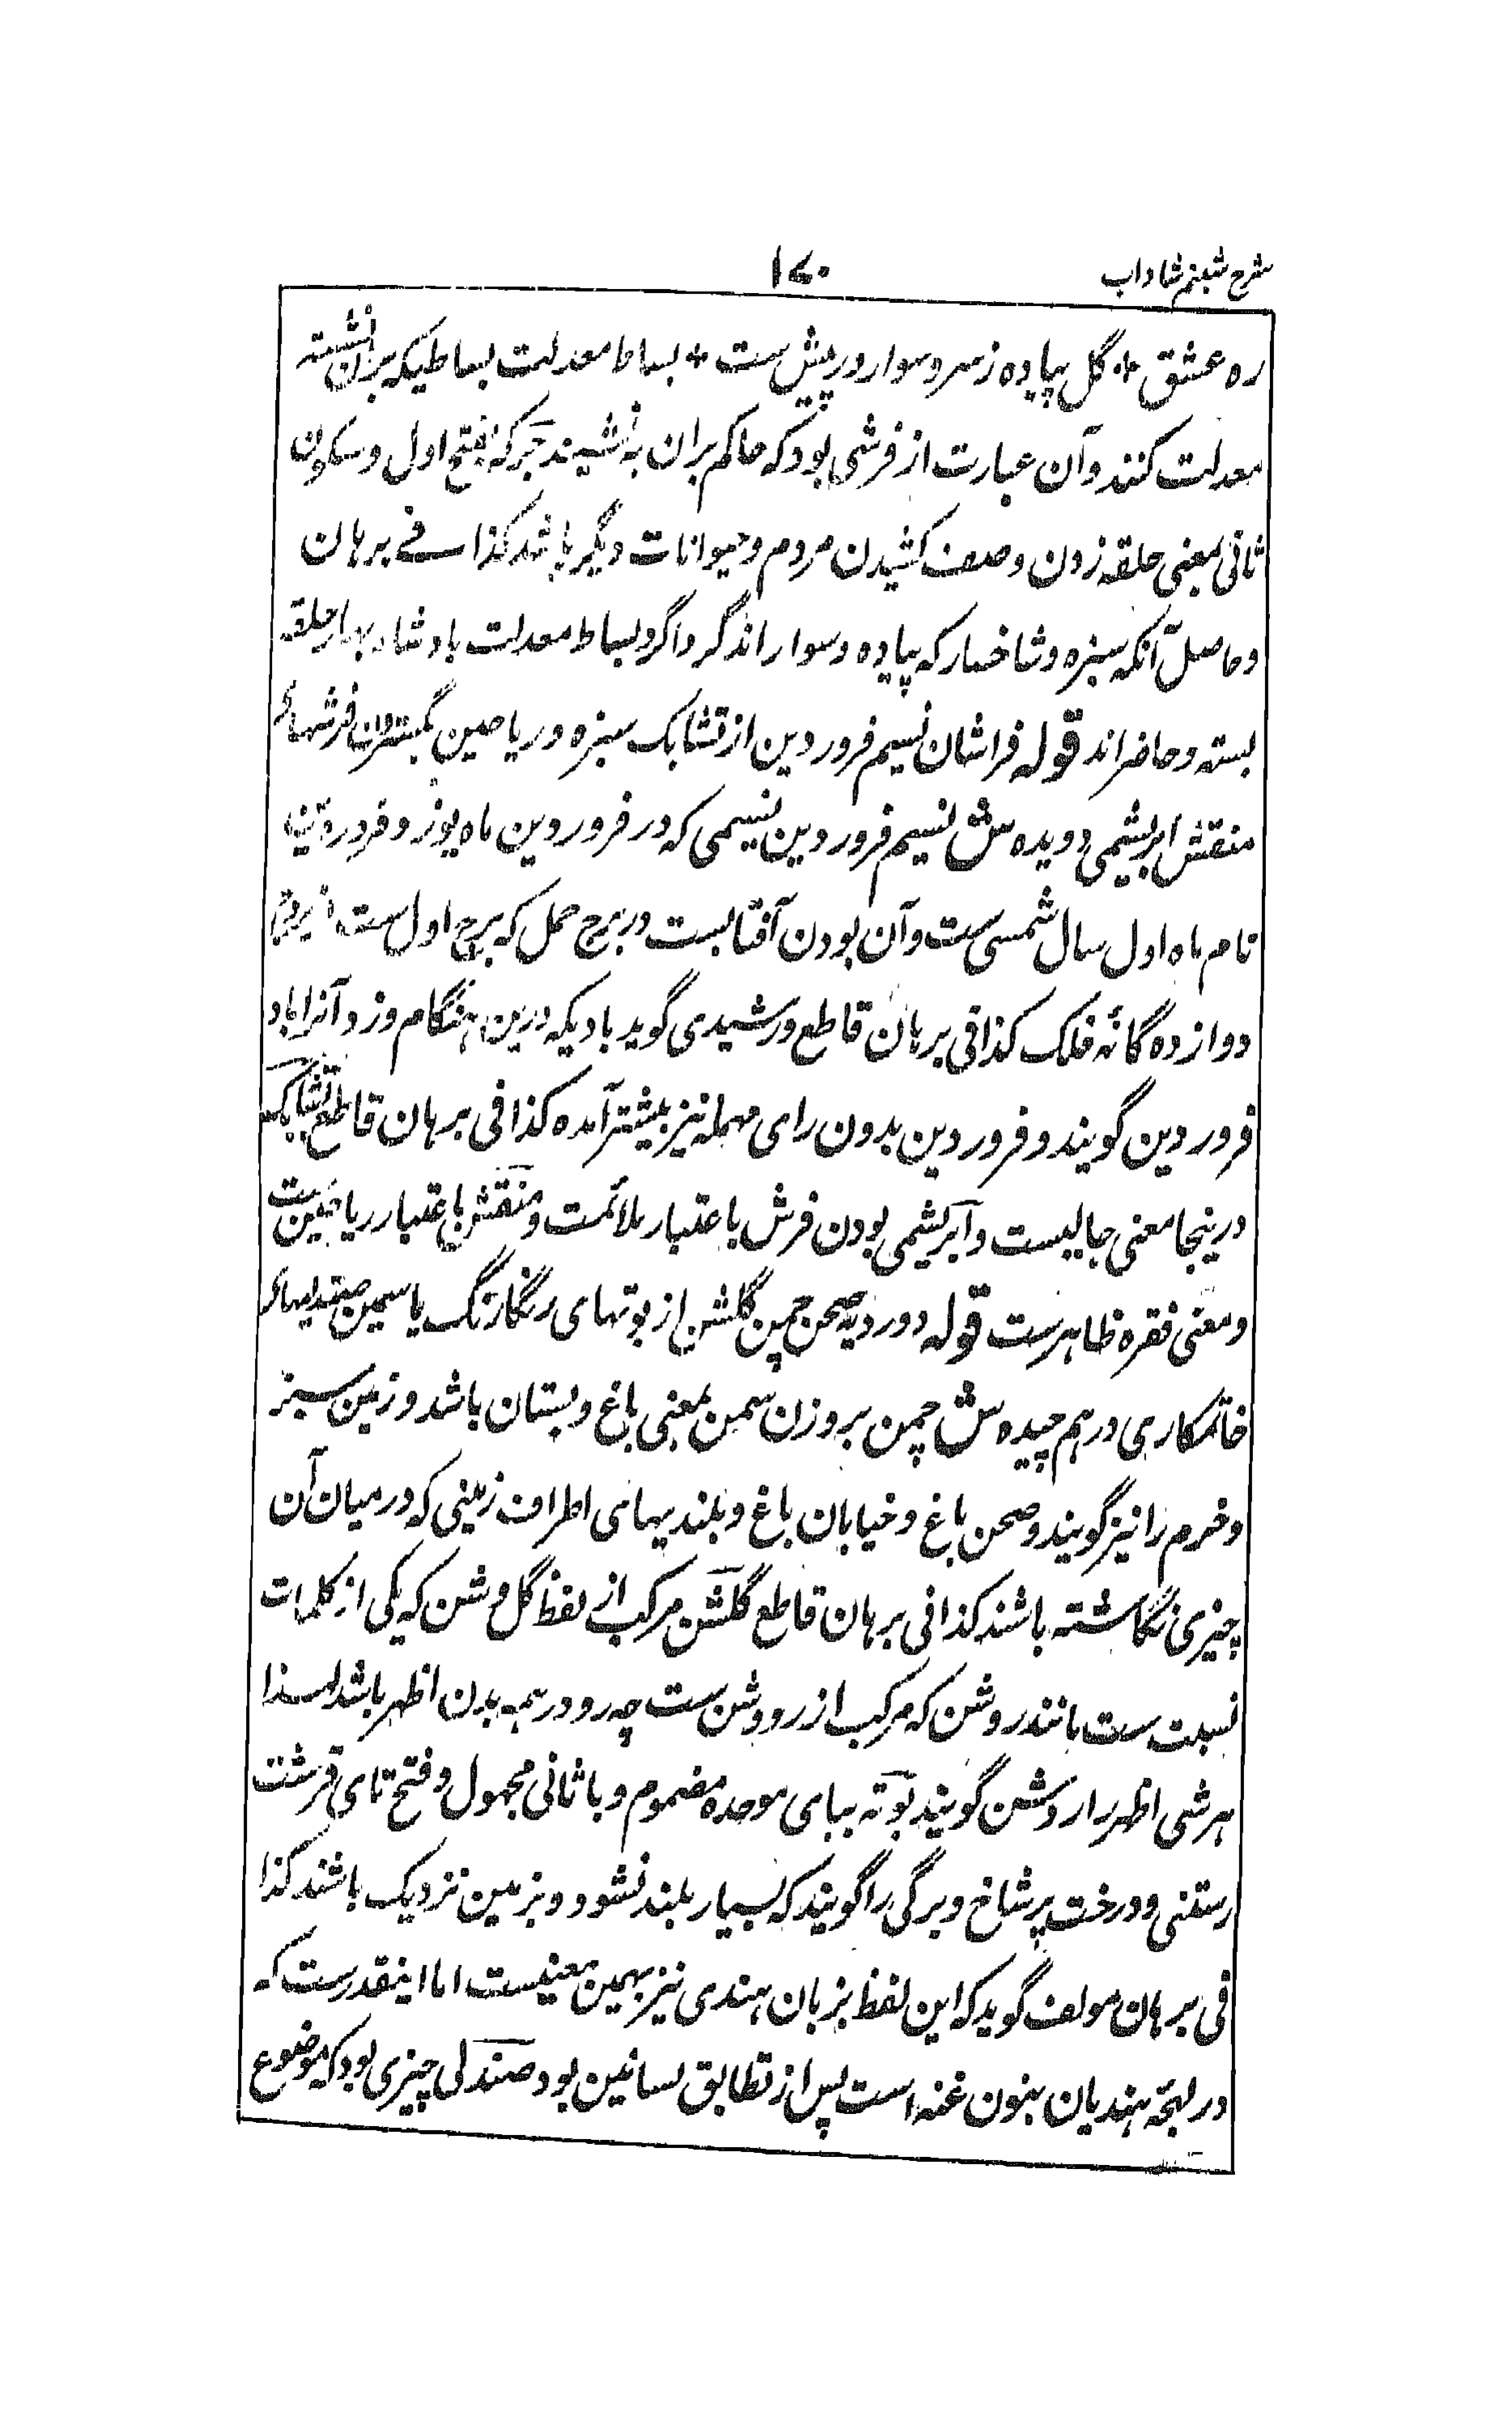 شرح شبنم شاداب
۱۷۰
ره عشق * گل پیاده ز سرو سوار در پیش ست * بساط معدلت بساطیکه بران نشسته
معدلت کنند و آن عبارت از فرشی بود که حاکم بران بنشیند جرکه بفتح اول و سکون
ثانی بمعنی حلقه زدن و صف کشیدن مردم و حیوانات دیگر باشد کذا فے برهان
و حاصل آنکه سبزه و شاخسار که پیاده و سوار اند گرداگرد بساط معدلت بادشاه بهار حلقه
بسته و حاضر اند قوله فراشان نسیم فروردین از تشابک سبزه و ریاحین بگسترون فرشهای
منقش ابریشمی دویده ش نسیم فروردین نسیمی که در فروردین ماه بوزد و فروردین
نام ماه اول سال شمسی ست و آن بودن آفتابست در برج حمل که برج اول ست از بروج
دوازده گانهٔ فلک کذا فی برهان قاطع و رشیدی گوید بادیکه درین هنگام وزد آنرا باد
فروردین گویند و فروردین بدون رای مهمله نیز بیشتر آمده کذا فی برهان قاطع تشابک
درینجا معنی جالیست و ابریشمی بودن فرش باعتبار ملائمت و منقش باعتبار ریاحین ست
و معنی فقره ظاهرست قوله دور دیه صحن چمن گلشن از بوتهای رنگارنگ یاسمین صندلیهای
خاتمکاری درهم چیده ش چمن بروزن سمن بمعنی باغ و بستان باشد و زمین سبز
و خرم را نیز گویند و صحن باغ و خیابان باغ و بلندیهای اطراف زمینی که در میان آن
چیزی نگاشته باشند کذا فی برهان قاطع گلشن مرکب از لفظ گل و شن که یکی از کلمات
نسبت ست مانند روشن که مرکب از رو و شن ست چه رو در همه بدن اظهر باشد لهذا
هر شی اظهر را روشن گویند بوته ببای موحده مضموم و با ثانی مجهول و فتح تای قرشت
رستنی و درخت پر شاخ و برگی را گویند که بسیار بلند نشود و بزمین نزدیک باشند کذا
فی برهان مولف گوید که این لفظ بزبان هندی نیز بهمین معنیست اما اینقدرست که
در لهجهٔ هندیان بنون غنه است پس از تطابق لسانین بود صندلی چیزی بود که موضوع